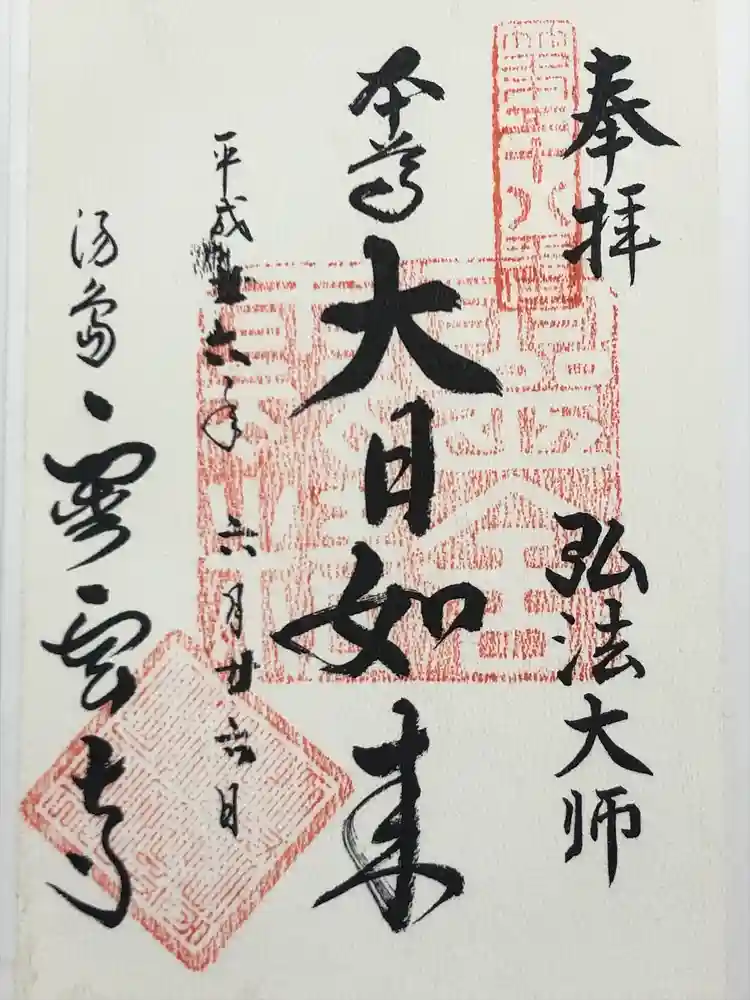 奉拝 弘法大師
本尊 大日如来
平成廿六年 六月廿六日
湯島 霊雲寺